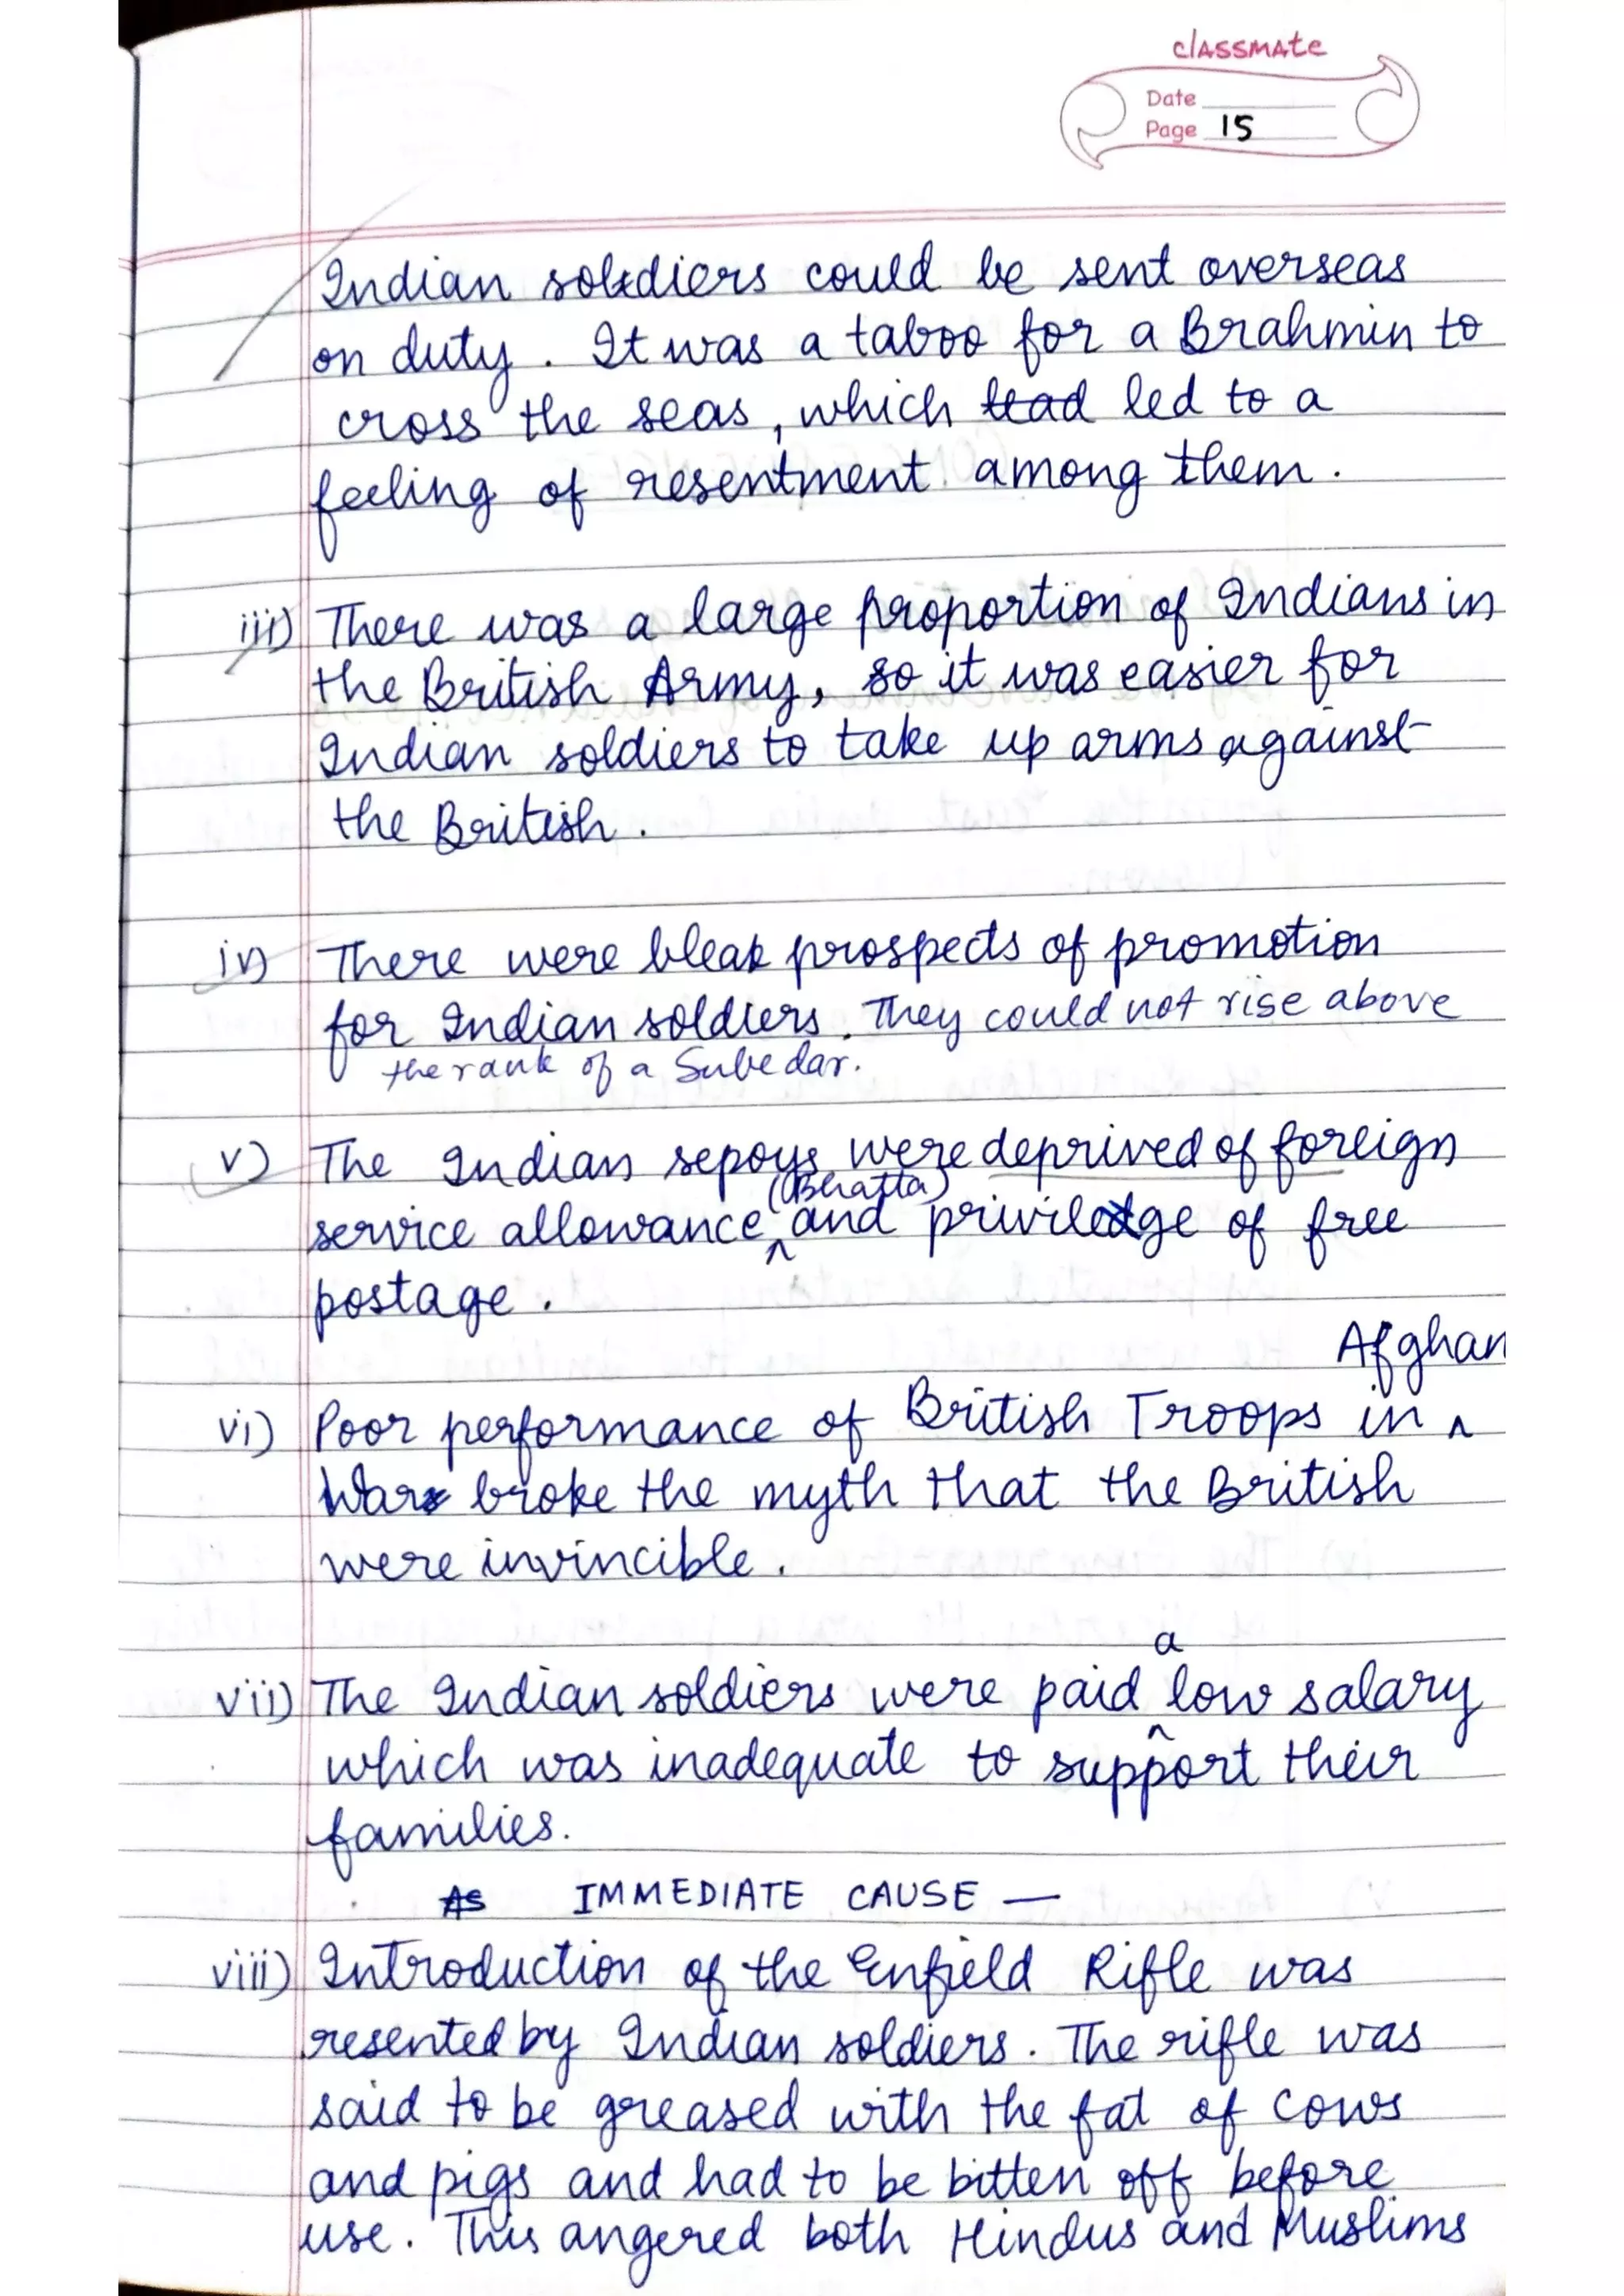 classmate
Date
Page 15
Indian soldiers could be sent overseas
on duty. It was a taboo for a Brahmin to
cross the seas, which lead led to a
feeling of resentment among them.
iii) There was a large proportion of Indians in
the British Army, so it was easier for
Indian soldiers to take up arms against
the British.
iv) There were bleak prospects of promotion
for Indian soldiers. They could not rise above
the rank of a Subedar.
v) The Indian sepoys were deprived of foreign
(Bhatta)
service allowance ^ and priviledge of free
postage.
Afghan
vi) Poor performance of British Troops in ^
War broke the myth that the British
were invincible.
a
vii) The Indian soldiers were paid ^ low salary
which was inadequate to support their
families.
As IMMEDIATE CAUSE —
viii) Introduction of the Enfield Rifle was
resented by Indian soldiers. The rifle was
said to be greased with the fat of cows
and pigs and had to be bitten off before
use. This angered both Hindus and Muslims